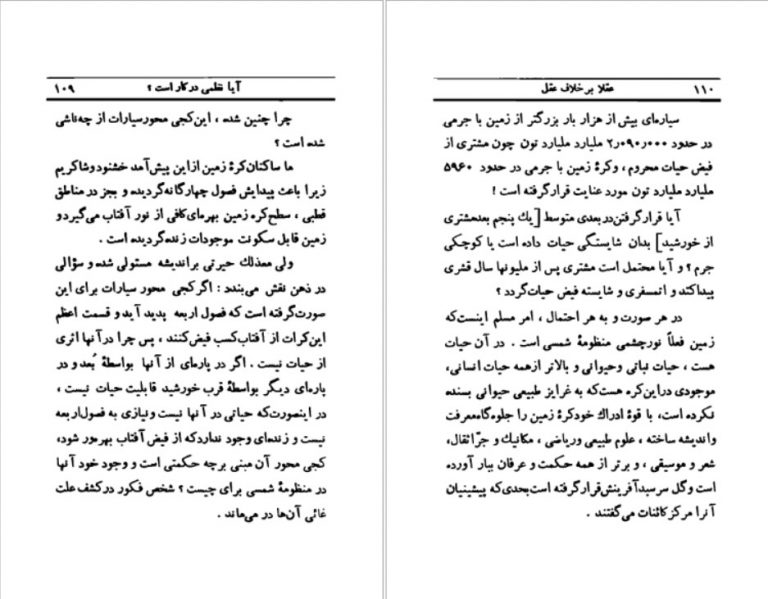 آیا نظمی در کار است ؟ ۱۰۹
چرا چنین شده ، این کجی محور سیارات از چه ناشی
شده است ؟
ما ساکنان کرهٔ زمین از این پیش آمد خشنود و شاکریم
زیرا باعث پیدایش فصول چهارگانه گردیده و بجز در مناطق
قطبی ، سطح کره زمین بهره‌ای کافی از نور آفتاب می‌گیرد و
زمین قابل سکونت موجودات زنده گردیده است .
ولی معذلك حیرتی بر اندیشه مستولی شده و سؤالی
در ذهن نقش می‌بندد : اگر کجی محور سیارات برای این
صورت گرفته است که فصول اربعه پدید آید و قسمت اعظم
این کرات از آفتاب کسب فیض کنند ، پس چرا در آنها اثری
از حیات نیست . اگر در پاره‌ای از آنها بواسطهٔ بُعد و در
پاره‌ای دیگر بواسطهٔ قرب خورشید قابلیت حیات نیست ،
در اینصورت که حیاتی در آنها نیست و نیازی به فصول اربعه
نیست و زنده‌ای وجود ندارد که از فیض آفتاب بهره‌ور شود،
کجی محور آن مبنی بر چه حکمتی است و وجود خود آنها
در منظومهٔ شمسی برای چیست ؟ شخص فکور در کشف علت
غائی آن‌ها در می‌ماند .
۱۱۰ عقلا بر خلاف عقل
سیاره‌ای بیش از هزار بار بزرگتر از زمین با جرمی
در حدود ۲٫۰۹۰٫۰۰۰ ملیارد ملیارد تون چون مشتری از
فیض حیات محروم ، و کرهٔ زمین با جرمی در حدود ۵۹۶۰
ملیارد ملیارد تون مورد عنایت قرار گرفته است !
آیا قرار گرفتن در بعدی متوسط [یك پنجم بعد مشتری
از خورشید] بدان شایستگی حیات داده است یا کوچکی
جرم ؟ و آیا محتمل است مشتری پس از ملیونها سال قشری
پیدا کند و اتمسفری و شایسته فیض حیات گردد ؟
در هر صورت و به هر احتمال ، امر مسلم اینست که
زمین فعلاً نورچشمی منظومهٔ شمسی است . در آن حیات
هست ، حیات نباتی و حیوانی و بالاتر از همه حیات انسانی،
موجودی در این کره هست که به غرایز طبیعی حیوانی بسنده
نکرده است، با قوهٔ ادراك خود کرهٔ زمین را جلوه‌گاه معرفت
و اندیشه ساخته ، علوم طبیعی و ریاضی ، مکانیك و جرّ اثقال،
شعر و موسیقی ، و برتر از همه حکمت و عرفان ببار آورده
است و گل سرسبد آفرینش قرار گرفته است بحدی که پیشینیان
آنرا مرکز کائنات می‌گفتند .